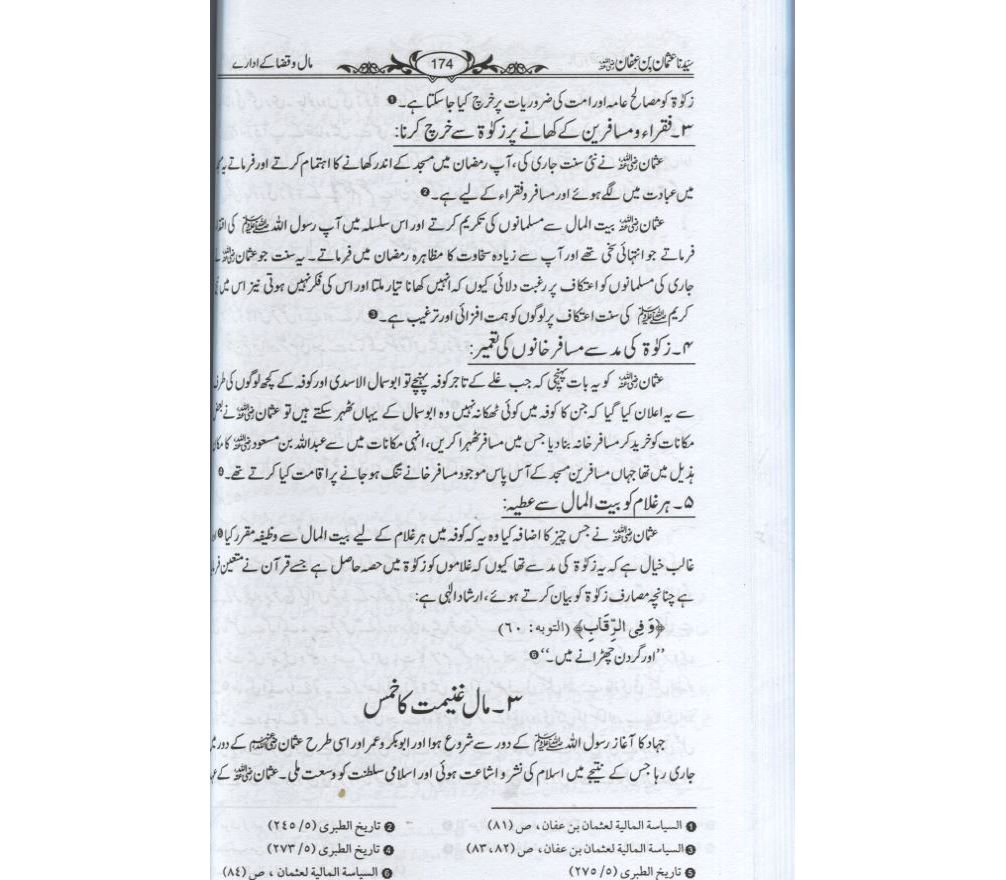 سیّدنا عثمان بن عفان رضی اللہ عنہ 174 مال وقضا کے ادارے
زکوٰۃ کو مصالح عامہ اور امت کی ضروریات پر خرچ کیا جا سکتا ہے۔❶
۳۔ فقراء و مسافرین کے کھانے پر زکوٰۃ سے خرچ کرنا:
عثمان رضی اللہ عنہ نے نئی سنت جاری کی، آپ رمضان میں مسجد کے اندر کھانے کا اہتمام کرتے اور فرماتے یہ
میں عبادت میں لگے ہوئے اور مسافر وفقراء کے لیے ہے۔❷
عثمان رضی اللہ عنہ بیت المال سے مسلمانوں کی تکریم کرتے اور اس سلسلہ میں آپ رسول اللہ ﷺ کی
فرماتے جو انتہائی سخی تھے اور آپ سے زیادہ سخاوت کا مظاہرہ رمضان میں فرماتے۔ یہ سنت جو عثمان رضی اللہ عنہ
جاری کی مسلمانوں کو اعتکاف پر رغبت دلائی کیوں کہ انہیں کھانا تیار ملتا اور اس کی فکر نہیں ہوتی نیز اس میں
کریم ﷺ کی سنت اعتکاف پر لوگوں کو ہمت افزائی اور ترغیب ہے۔❸
۴۔ زکوٰۃ کی مد سے مسافر خانوں کی تعمیر:
عثمان رضی اللہ عنہ کو یہ بات پہنچی کہ جب غلے کے تاجر کوفہ پہنچے تو ابوسمال الاسدی اور کوفہ کے کچھ لوگوں کی طرف
سے یہ اعلان کیا گیا کہ جن کا کوفہ میں کوئی ٹھکانہ نہیں وہ ابوسمال کے یہاں ٹھہر سکتے ہیں تو عثمان رضی اللہ عنہ نے بعض
مکانات کو خرید کر مسافر خانہ بنا دیا جس میں مسافر ٹھہرا کریں، انہی مکانات میں سے عبداللہ بن مسعود رضی اللہ عنہ کا
ہذیل میں تھا جہاں مسافرین مسجد کے آس پاس موجود مسافر خانے تنگ ہو جانے پر اقامت کیا کرتے تھے۔
۵۔ ہر غلام کو بیت المال سے عطیہ:
عثمان رضی اللہ عنہ نے جس چیز کا اضافہ کیا وہ یہ کہ کوفہ میں ہر غلام کے لیے بیت المال سے وظیفہ مقرر کیا
غالب خیال ہے کہ یہ زکوٰۃ کی مد سے تھا کیوں کہ غلاموں کو زکوٰۃ میں حصہ حاصل ہے جسے قرآن نے متعین
ہے چنانچہ مصارف زکوٰۃ کو بیان کرتے ہوئے، ارشاد الٰہی ہے:
﴿وَ فِی الرِّقَابِ﴾ (التوبه: ٦٠)
’’اور گردن چھڑانے میں۔‘‘❻
۳۔ مال غنیمت کا خمس
جہاد کا آغاز رسول اللہ ﷺ کے دور سے شروع ہوا اور ابوبکر و عمر اور اسی طرح عثمان رضی اللہ عنہم کے دور
جاری رہا جس کے نتیجے میں اسلام کی نشر و اشاعت ہوئی اور اسلامی سلطنت کو وسعت ملی۔ عثمان رضی اللہ عنہ کے
❶ السياسة المالية لعثمان بن عفان، ص (٨١) ❷ تاريخ الطبری (٥/ ٢٤٥)
❸ السياسة المالية لعثمان بن عفان، ص (٨٢، ٨٣) ❹ تاريخ الطبری (٥/ ٢٧٣)
❺ تاريخ الطبری (٥/ ٢٧٥) ❻ السياسة المالية لعثمان، ص (٨٤)